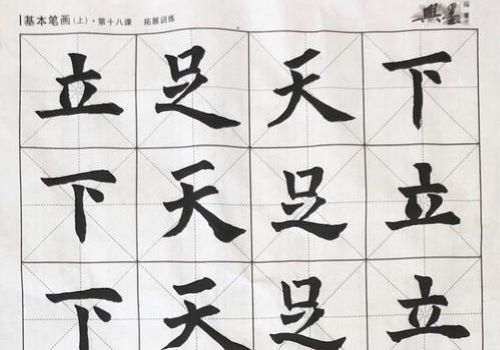 基本笔画(上)·第十八课 拓展训练
立足天下
下天足立
下天足立